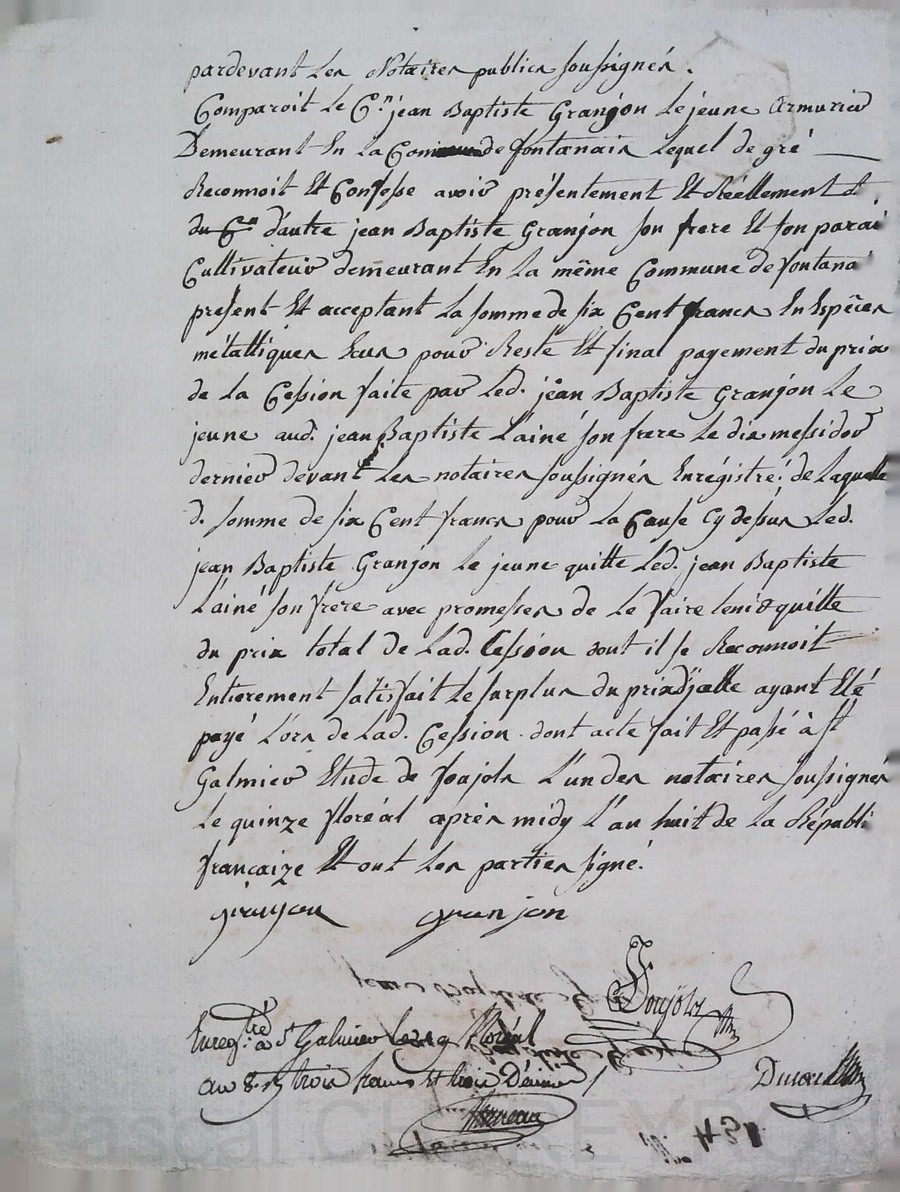 pardevant Les Notaires publics soussignés.
Comparoit Le C.en jean Baptiste Granjon Le jeune Armurier
Demeurant En La Com de fontanais Lequel de gré
Reconnoit Et Confesse avoir présentement Et Réellement
du C.en d'autre jean Baptiste Granjon son frere Et son
Cultivateur demeurant En La même Commune de fontana
présent Et acceptant La somme de six Cent francs En Espèces
métalliques pour Reste Et final payement du prix
de La Cession faite par Led. jean Baptiste Granjon Le
jeune aud. jean Baptiste L'ainé son frere Le dix messidor
dernier devant Les notaires soussignés Enrégistré; de Laquelle
d. somme de six Cent francs pour La Cause Cy dessus Led.
jean Baptiste Granjon Le jeune quitte Led. jean Baptiste
L'ainé son frere avec promesses de Le faire tenir quitte
du prix total de Lad. Cession dont il se Reconnoit
Entierement satisfait Le surplus du prix d'jcelle ayant Eté
payé L'ors de Lad. Cession. dont acte fait Et passé à St
Galmier Etude de foujols L'un des notaires soussignés
Le quinze floréal après midy L'an huit de La Républi
françaize Et ont Les parties signé.
granjon granjon
Foujols
Enreg.tré à St Galmier Le 25 floréal
an 8. trois francs Et trois Décimes
N.o 431